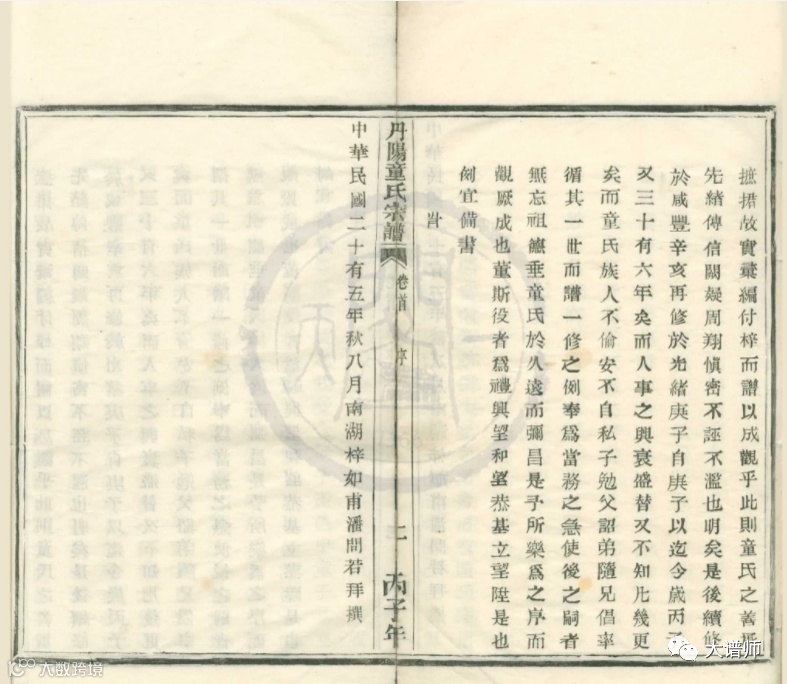 摭摺故實彙編付梓而譜以成觀乎此則童氏之善承
先緒傳信闕疑周翔慎密不誣不濫也明矣是後續修
於咸豐辛亥再修於光緒庚子自庚子以迄今歲丙子
又三十有六年矣而人事之興衰盛替又不知凡幾更
矣而童氏族人不偷安不自私子勉父詔弟隨兄倡率
循其一世而譜一修之例奉為當務之急使後之嗣者
無忘祖德垂童氏於久遠而彌昌是予所樂為之序而
觀厥成也董斯役者為禮興望和望恭基立望陞是也
例宜備書
旹
丹陽童氏宗譜
卷首
序
二
丙子年
中華民國二十有五年秋八月南湖梓如甫潘問若拜撰
大谱师
大数跨境